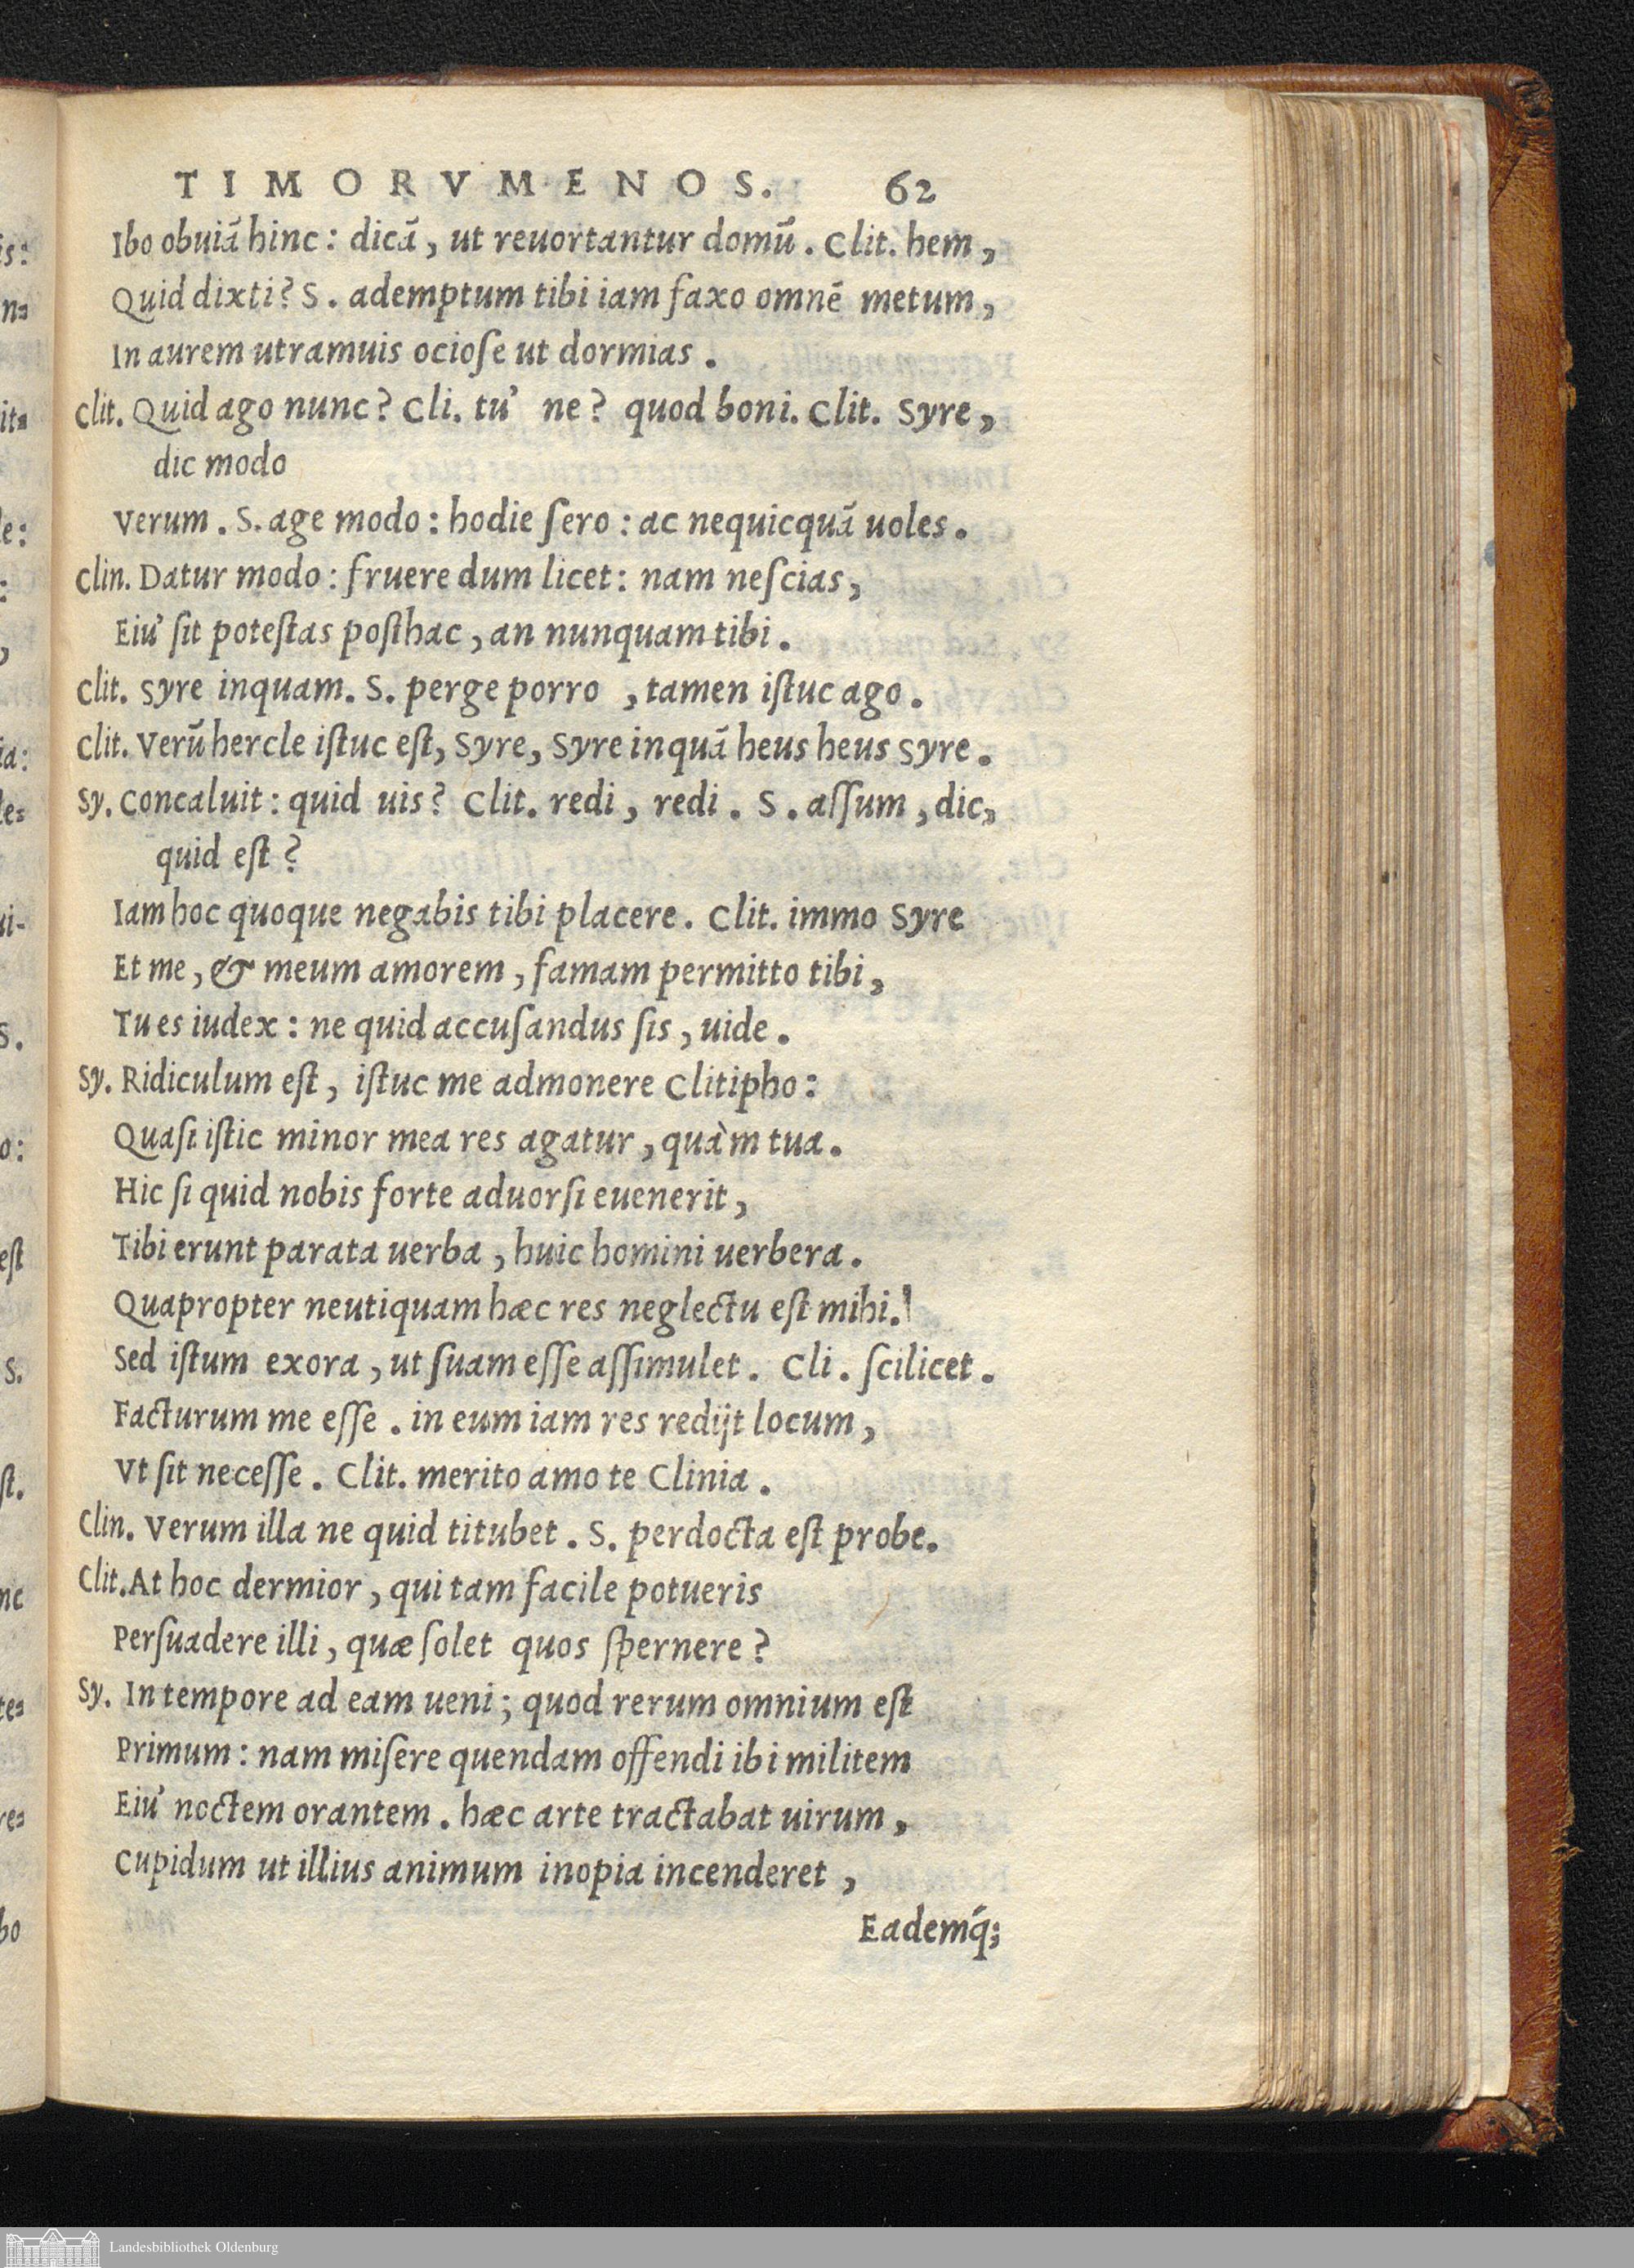 TIMORVMENOS. 62
Ibo obuiā hinc: dicā, ut reuortantur domū. Clit. hem,
Quid dixti? S. ademptum tibi iam faxo omnē metum,
In aurem utramuis ocioſe ut dormias.
Clit. Quid ago nunc? Cli. tu' ne? quod boni. Clit. Syre,
dic modo
Verum. S. age modo: hodie ſero: ac nequicquā uoles.
Clin. Datur modo: fruere dum licet: nam neſcias,
Eiu' ſit poteſtas poſthac, an nunquam tibi.
Clit. Syre inquam. S. perge porro, tamen iſtuc ago.
Clit. Verū hercle iſtuc eſt, Syre, Syre inquā heus heus Syre.
Sy. Concaluit: quid uis? Clit. redi, redi. S. aſſum, dic,
quid eſt?
Iam hoc quoque negabis tibi placere. Clit. immo Syre
Et me, & meum amorem, famam permitto tibi,
Tu es iudex: ne quid accuſandus ſis, uide.
Sy. Ridiculum eſt, iſtuc me admonere Clitipho:
Quaſi iſtic minor mea res agatur, quàm tua.
Hic ſi quid nobis forte aduorſi euenerit,
Tibi erunt parata uerba, huic homini uerbera.
Quapropter neutiquam hæc res neglectu eſt mihi.
Sed iſtum exora, ut ſuam eſſe aſſimulet. Cli. ſcilicet.
Facturum me eſſe. in eum iam res redijt locum,
Vt ſit neceſſe. Clit. merito amo te Clinia.
Clin. Verum illa ne quid titubet. S. perdocta eſt probe.
Clit. At hoc dermior, qui tam facile potueris
Perſuadere illi, quæ ſolet quos ſpernere?
Sy. In tempore ad eam ueni; quod rerum omnium eſt
Primum: nam miſere quendam offendi ibi militem
Eiu' noctem orantem. hæc arte tractabat uirum,
Cupidum ut illius animum inopia incenderet,
Eademq́;
Landesbibliothek Oldenburg